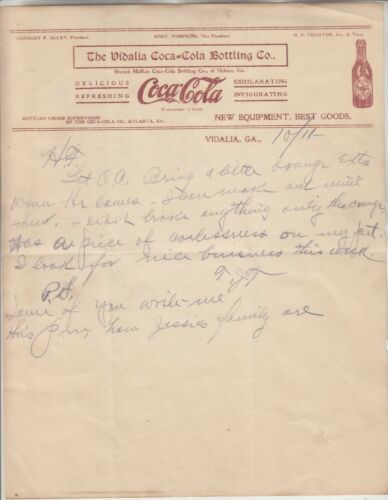 ROBT. TOMPKINS, Vice President
The Vidalia Coca-Cola Bottling Co.,
Branch McRae Coca-Cola Bottling Co., of Helena, Ga.
DELICIOUS
REFRESHING
Coca-Cola
EXHILARATING
INVIGORATING
BOTTLED UNDER SUPERVISION
OF THE COCA-COLA CO., ATLANTA, GA.
NEW EQUIPMENT, BEST GOODS,
VIDALIA, GA., 10/11
H.T.
Let O.C. Bring a little orange Ext
When He comes - I can make out until
then, I didnt broke anything only the orange
Was a piece of carlessness on my part.
I look for nice business this week.
T.J.T.
P.S.
Some of you write me
this P.m, how Jessies family are